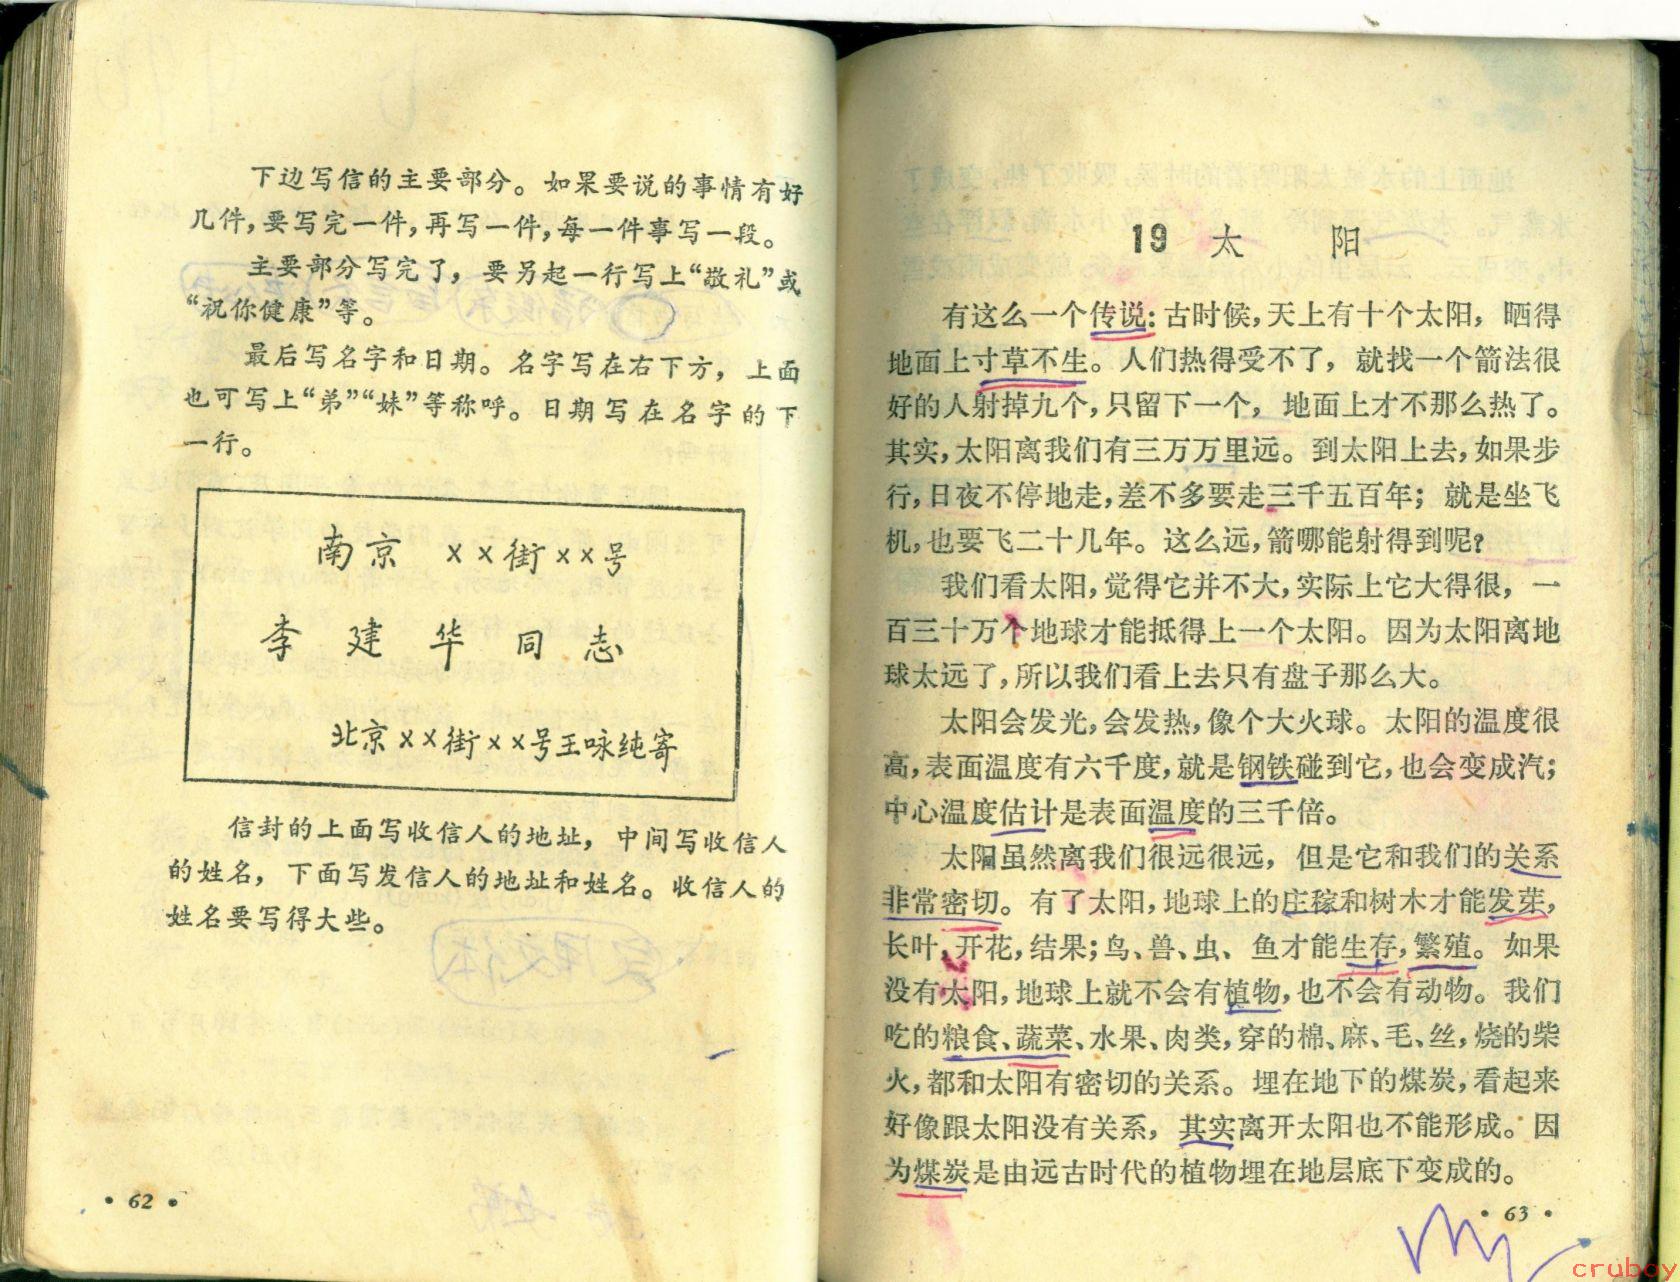 下边写信的主要部分。如果要说的事情有好
几件，要写完一件，再写一件，每一件事写一段。
主要部分写完了，要另起一行写上“敬礼”或
“祝你健康”等。
最后写名字和日期。名字写在右下方，上面
也可写上“弟”“妹”等称呼。日期写在名字的下
一行。
南京 ××街××号
李建华同志
北京××街××号王咏纯寄
信封的上面写收信人的地址，中间写收信人
的姓名，下面写发信人的地址和姓名。收信人的
姓名要写得大些。
·62·
19 太阳
有这么一个传说：古时候，天上有十个太阳，晒得
地面上寸草不生。人们热得受不了，就找一个箭法很
好的人射掉九个，只留下一个，地面上才不那么热了。
其实，太阳离我们有三万万里远。到太阳上去，如果步
行，日夜不停地走，差不多要走三千五百年；就是坐飞
机，也要飞二十几年。这么远，箭哪能射得到呢？
我们看太阳，觉得它并不大，实际上它大得很，一
百三十万个地球才能抵得上一个太阳。因为太阳离地
球太远了，所以我们看上去只有盘子那么大。
太阳会发光，会发热，像个大火球。太阳的温度很
高，表面温度有六千度，就是钢铁碰到它，也会变成汽；
中心温度估计是表面温度的三千倍。
太阳虽然离我们很远很远，但是它和我们的关系
非常密切。有了太阳，地球上的庄稼和树木才能发芽，
长叶，开花，结果；鸟、兽、虫、鱼才能生存，繁殖。如果
没有太阳，地球上就不会有植物，也不会有动物。我们
吃的粮食、蔬菜、水果、肉类，穿的棉、麻、毛、丝，烧的柴
火，都和太阳有密切的关系。埋在地下的煤炭，看起来
好像跟太阳没有关系，其实离开太阳也不能形成。因
为煤炭是由远古时代的植物埋在地层底下变成的。
·63·
cruboy